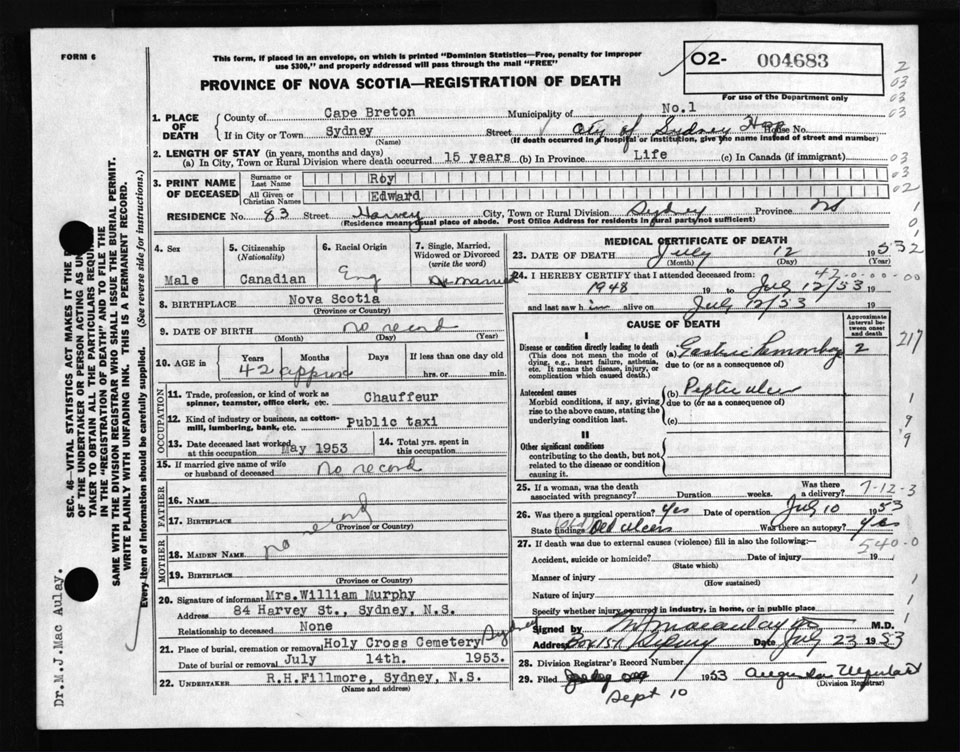 FORM 6
This form, if placed in an envelope, on which is printed "Dominion Statistics—Free, penalty for improper
use $300," and properly addressed will pass through the mail "FREE"
PROVINCE OF NOVA SCOTIA—REGISTRATION OF DEATH
02- 004683
For use of the Department only
1. PLACE OF DEATH
County of Cape Breton Municipality of No.1
If in City or Town Sydney Street City of Sydney Hosp House No.
(Name) (If death occurred in a hospital or institution, give the name instead of street and number)
2. LENGTH OF STAY (in years, months and days)
(a) In City, Town or Rural Division where death occurred 15 years (b) In Province Life (c) In Canada (if immigrant)
3. PRINT NAME OF DECEASED
Surname or Last Name Roy
All Given or Christian Names Edward
RESIDENCE No. 83 Street Harvey City, Town or Rural Division Sydney Province NS
(Residence means usual place of abode. Post Office Address for residents in rural parts not sufficient)
4. Sex
Male
5. Citizenship (Nationality)
Canadian
6. Racial Origin
Eng
7. Single, Married, Widowed or Divorced (write the word)
Married
8. BIRTHPLACE Nova Scotia
(Province or Country)
9. DATE OF BIRTH no record
(Month) (Day) (Year)
10. AGE in Years Months Days If less than one day old
42 approx hrs. or min.
OCCUPATION
11. Trade, profession, or kind of work as spinner, teamster, office clerk, etc. Chauffeur
12. Kind of industry or business, as cotton-mill, lumbering, bank, etc. Public taxi
13. Date deceased last worked at this occupation May 1953
14. Total yrs. spent in this occupation
15. If married give name of wife or husband of deceased no record
FATHER
16. NAME
17. BIRTHPLACE
(Province or Country)
MOTHER
18. MAIDEN NAME no
19. BIRTHPLACE
(Province or Country)
20. Signature of informant Mrs.William Murphy
Address 84 Harvey St., Sydney, N.S.
Relationship to deceased None
21. Place of burial, cremation or removal Holy Cross Cemetery Sydney
Date of burial or removal July 14th. 1953.
22. UNDERTAKER R.H.Fillmore, Sydney, N.S.
(Name and address)
MEDICAL CERTIFICATE OF DEATH
23. DATE OF DEATH July 12 1953
(Month) (Day) (Year)
24. I HEREBY CERTIFY that I attended deceased from:
1948 19 to July 12/53 19
and last saw h im alive on July 12/53 19
CAUSE OF DEATH
Approximate interval between onset and death
I
Disease or condition directly leading to death
(This does not mean the mode of dying, e.g., heart failure, asthenia, etc. It means the disease, injury, or complication which caused death.)
(a) Gastric hemorrhage 2
due to (or as a consequence of)
Antecedent causes
Morbid conditions, if any, giving rise to the above cause, stating the underlying condition last.
(b) Peptic ulcer
due to (or as a consequence of)
(c)
II
Other significant conditions
contributing to the death, but not related to the disease or condition causing it.
25. If a woman, was the death associated with pregnancy? Duration weeks. Was there a delivery?
7-12-3
26. Was there a surgical operation? yes Date of operation July 10 1953
State findings Old ulcers Was there an autopsy? yes
27. If death was due to external causes (violence) fill in also the following:—
540-0
Accident, suicide or homicide? Date of injury 19
(State which)
Manner of injury
(How sustained)
Nature of injury
Specify whether injury occurred in industry, in home, or in public place
Signed by M J Macaulay M.D.
Address Box 157 Sydney Date July 23 1953
28. Division Registrar's Record Number
29. Filed 1953
Sept 10
(Division Registrar)
SEC. 46—VITAL STATISTICS ACT MAKES IT THE
OF THE UNDERTAKER OR PERSON ACTING AS
TAKER TO OBTAIN ALL THE PARTICULARS REQUIRED
IN THE "REGISTRATION OF DEATH" AND TO FILE THE
SAME WITH THE DIVISION REGISTRAR WHO SHALL ISSUE THE BURIAL PERMIT.
WRITE PLAINLY WITH UNFADING INK. THIS IS A PERMANENT RECORD.
Every item of Information should be carefully supplied. (See reverse side for instructions.)
Dr.M.J.Mac Aulay.
2
03
03
03
03
03
02
1
0
1
2
42-0-00-00
217
1
9
9
1
1
1